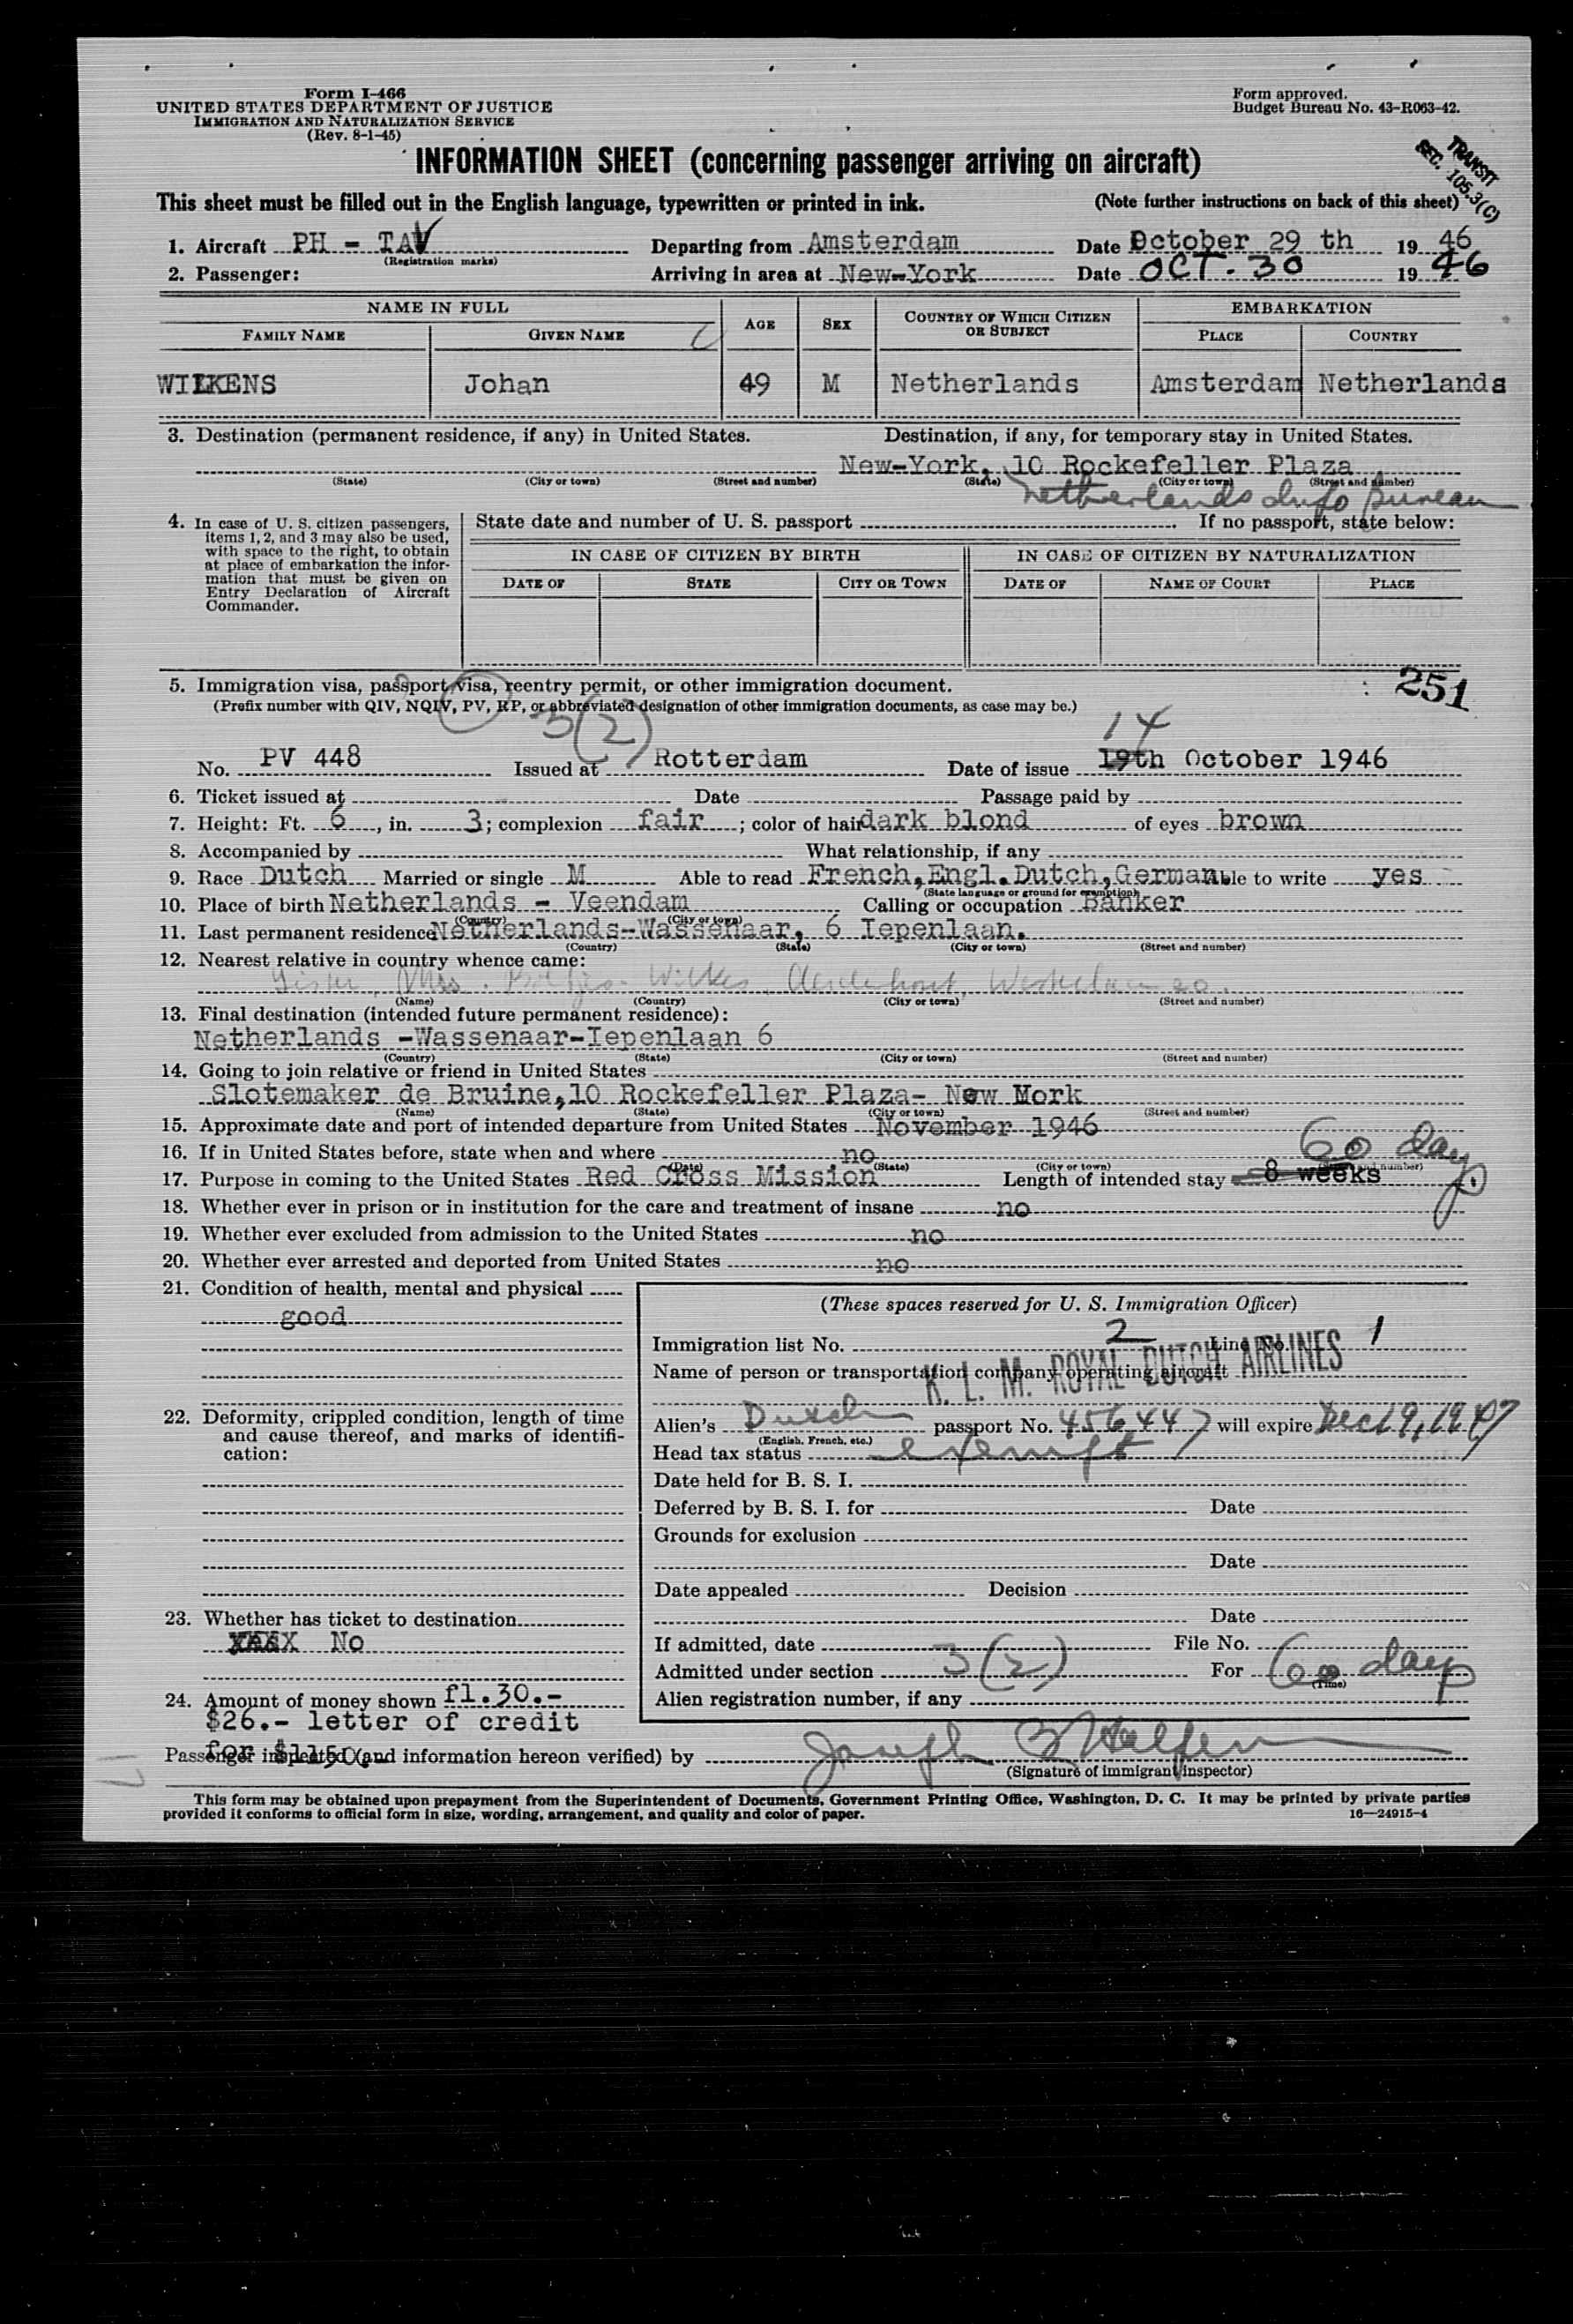 Form I-466
UNITED STATES DEPARTMENT OF JUSTICE
IMMIGRATION AND NATURALIZATION SERVICE
(Rev. 8-1-45)
Form approved.
Budget Bureau No. 43-R063-42.
TRANSIT
SEC. 105.3(C)
INFORMATION SHEET (concerning passenger arriving on aircraft)
This sheet must be filled out in the English language, typewritten or printed in ink. (Note further instructions on back of this sheet)
1. Aircraft PH - TAV Departing from Amsterdam Date October 29 th 19 46
(Registration marks)
2. Passenger: Arriving in area at New-York Date OCT. 30 19 46
NAME IN FULL AGE SEX COUNTRY OF WHICH CITIZEN OR SUBJECT EMBARKATION
FAMILY NAME GIVEN NAME PLACE COUNTRY
WILKENS Johan 49 M Netherlands Amsterdam Netherlands
3. Destination (permanent residence, if any) in United States. Destination, if any, for temporary stay in United States.
New-York, 10 Rockefeller Plaza
(State) (City or town) (Street and number) (State) (City or town) (Street and number)
Netherlands Info Bureau
4. In case of U. S. citizen passengers, items 1, 2, and 3 may also be used, with space to the right, to obtain at place of embarkation the information that must be given on Entry Declaration of Aircraft Commander.
State date and number of U. S. passport If no passport, state below:
IN CASE OF CITIZEN BY BIRTH IN CASE OF CITIZEN BY NATURALIZATION
DATE OF STATE CITY OR TOWN DATE OF NAME OF COURT PLACE
5. Immigration visa, passport visa, reentry permit, or other immigration document.
251
(Prefix number with QIV, NQIV, PV, RP, or abbreviated designation of other immigration documents, as case may be.)
3(2) 14
No. PV 448 Issued at Rotterdam Date of issue 19th October 1946
6. Ticket issued at Date Passage paid by
7. Height: Ft. 6, in. 3; complexion fair; color of hair dark blond of eyes brown
8. Accompanied by What relationship, if any
9. Race Dutch Married or single M Able to read French, Engl. Dutch, German Able to write yes
(State language or ground for exemption)
10. Place of birth Netherlands - Veendam Calling or occupation Banker
(Country) (City or town)
11. Last permanent residence Netherlands-Wassenaar, 6 Iepenlaan.
(Country) (State) (City or town) (Street and number)
12. Nearest relative in country whence came:
Sister, Mrs.
(Name) (Country) (City or town) (Street and number)
13. Final destination (intended future permanent residence):
Netherlands -Wassenaar-Iepenlaan 6
(Country) (State) (City or town) (Street and number)
14. Going to join relative or friend in United States
Slotemaker de Bruine,10 Rockefeller Plaza- New Mork
(Name) (State) (City or town) (Street and number)
15. Approximate date and port of intended departure from United States November 1946
16. If in United States before, state when and where no
60 days
(Date) (State) (City or town) (Street and number)
17. Purpose in coming to the United States Red Cross Mission Length of intended stay 8 weeks
18. Whether ever in prison or in institution for the care and treatment of insane no
19. Whether ever excluded from admission to the United States no
20. Whether ever arrested and deported from United States no
21. Condition of health, mental and physical
good
(These spaces reserved for U. S. Immigration Officer)
Immigration list No. 2 Line No. 1
Name of person or transportation company operating aircraft
K. L. M. ROYAL DUTCH AIRLINES
22. Deformity, crippled condition, length of time and cause thereof, and marks of identification:
Alien's Dutch passport No. 456447 will expire Dec 19, 1947
(English, French, etc.)
Head tax status exempt
Date held for B. S. I.
Deferred by B. S. I. for Date
Grounds for exclusion
Date
Date appealed Decision
Date
23. Whether has ticket to destination
No
If admitted, date File No.
Admitted under section 3(2) For 60 days
(Time)
Alien registration number, if any
24. Amount of money shown fl.30.-
$26.- letter of credit
for $1150.-
Passenger inspected (and information hereon verified) by Joseph
(Signature of immigrant inspector)
This form may be obtained upon prepayment from the Superintendent of Documents, Government Printing Office, Washington, D. C. It may be printed by private parties
provided it conforms to official form in size, wording, arrangement, and quality and color of paper.
16—24915-4